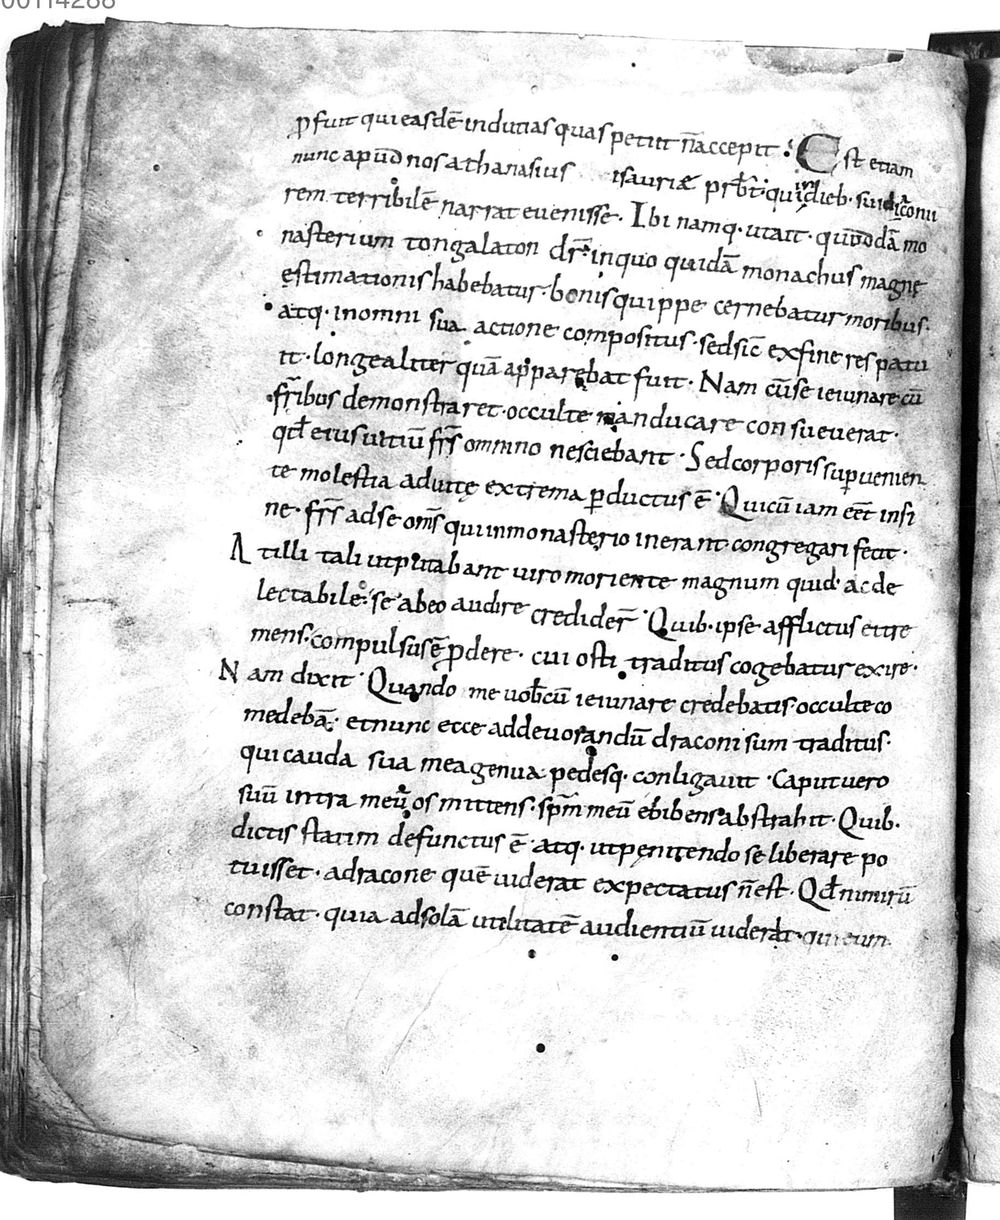 00114288
ꝓfuit qui easdē indutias quas petiit n̄ accepit · Est etiam
nunc apud nos athanasius isaurię prb̄t · qui in dieb · suis iconii
rem terribilē narrat euenisse · Ibi namq · ut ait · quoddā mo
nasterium tongalaton dr̄ · in quo quidā monachus magnę
estimationis habebatur · bonis quippe cernebatur moribus ·
atq · in omni sua actione compositus · sed sic̄ ex fine res patu
it · longe aliter quā apparebat fuit · Nam cū se ieiunare cū
fr̄ibus demonstraret · occulte manducare consueuerat ·
qd̄ eius uitiū fr̄s omnino nesciebant · Sed corporis suꝑuenien
te molestia ad uitę extrema ꝑductus ē · Qui cū iam eēt in fi
ne · fr̄s ad se om̄s qui in monasterio inerant congregari fecit ·
At illi tali ut putabant uiro moriente magnum quid · ac de
lectabile · se ab eo audire credider̄ · Quib · ipse afflictus et tre
mens · compulsus ē ꝓdere · cui osti traditus cogebatur exire ·
Nam dixit · Quando me uob̄cū ieiunare credebatis · occulte co
medebā · et nunc ecce ad deuorandū draconi sum traditus ·
qui cauda sua mea genua pedesq · conligauit · Caput uero
suū intra meū os mittens · sp̄m meū ebibens abstrahit · Quib ·
dictis statim defunctus ē · atq · ut penitendo se liberare po
tuisset · a dracone quē uiderat expectatus n̄ est · Qd̄ nimirū
constat · quia ad solā utilitatē audientiū uiderat · qui eum